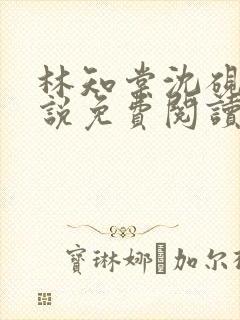 林知棠沈硯
說免費閱讀
寶琳娜·加尔